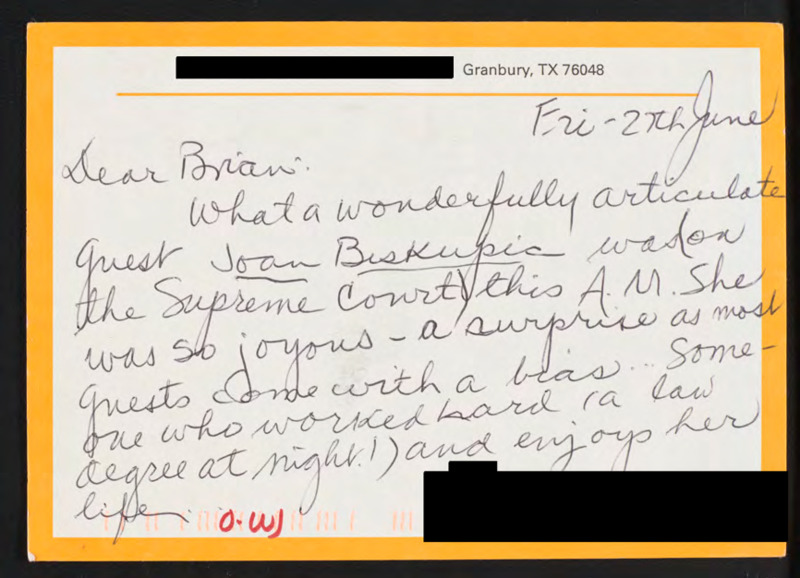 Granbury, TX 76048
Fri - 27th June
Dear Brian:
What a wonderfully articulate
guest Joan Biskupic was (on
the Supreme Court) this A.M. She
was so joyous - a surprise as most
guests come with a bias... Some-
one who worked hard (a law
degree at night!) and enjoys her
life.
O-WJ